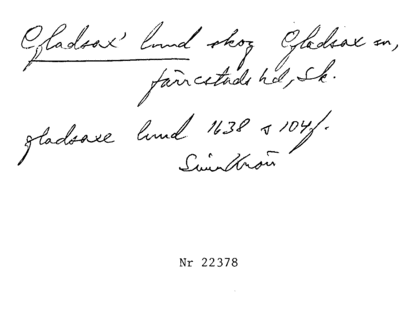 Gladsax' lund skog Gladsax sn,
Järrestads hd, Sk.
gladsaxe lund 1638 s 104f.
Nr 22378